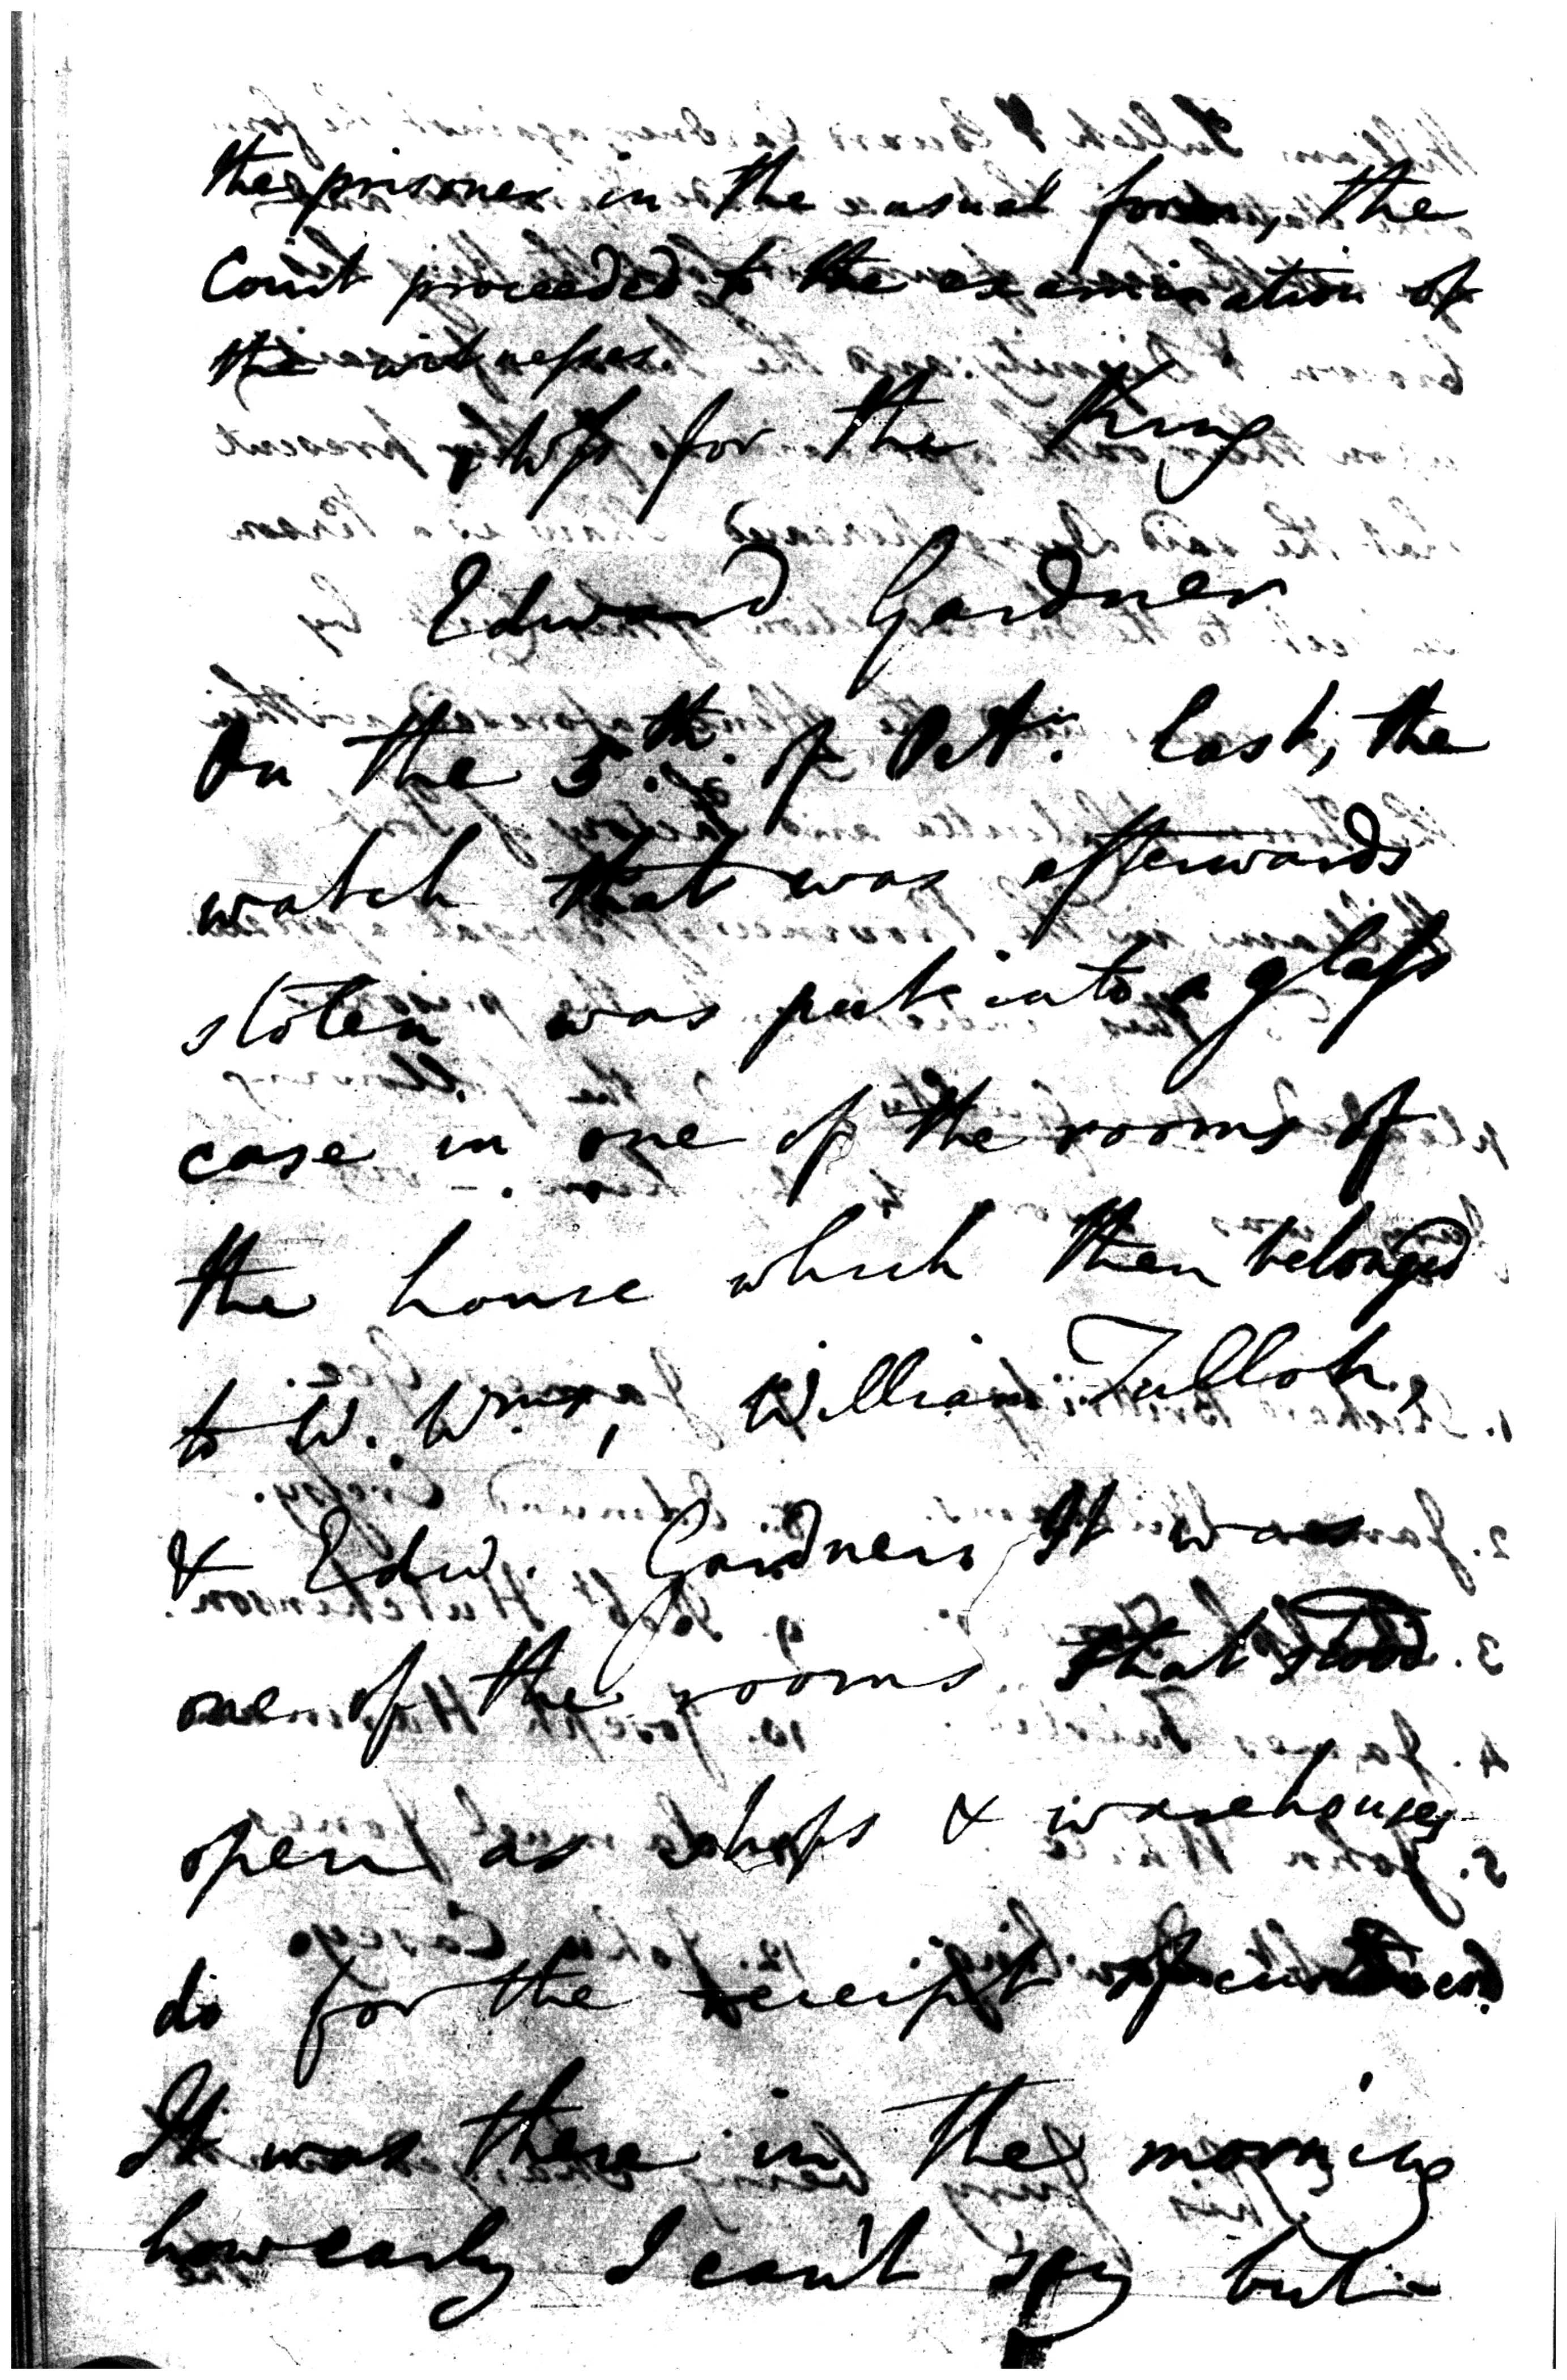 the prisoner in the usual form, the
Court proceeded to the examination of
the witnesses.
Wits for the King
Edward Gardner
On the 5.th of Octr. last, the
watch that was afterwards
stolen was put into a glass
case in one of the rooms of
the house which then belonged
to W. William Tulloh,
& Edw. Gardner. It was
one of the rooms that stood
open as shops & warehouses
do for the receipt of
It was there in the morning
how early I can't say but